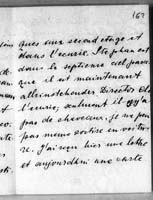 162
ques une second étage et
dans l'écurie. Stéphan est
dans la septième ciel parce
que il est maintenant
alleinstehender Director
l'écurie, seulment il n'y a
pas de chevaux, je ne peu
pas même sortise en voitu-
re. J'ai reçu hier une lettre
et aujourd'hui une carte